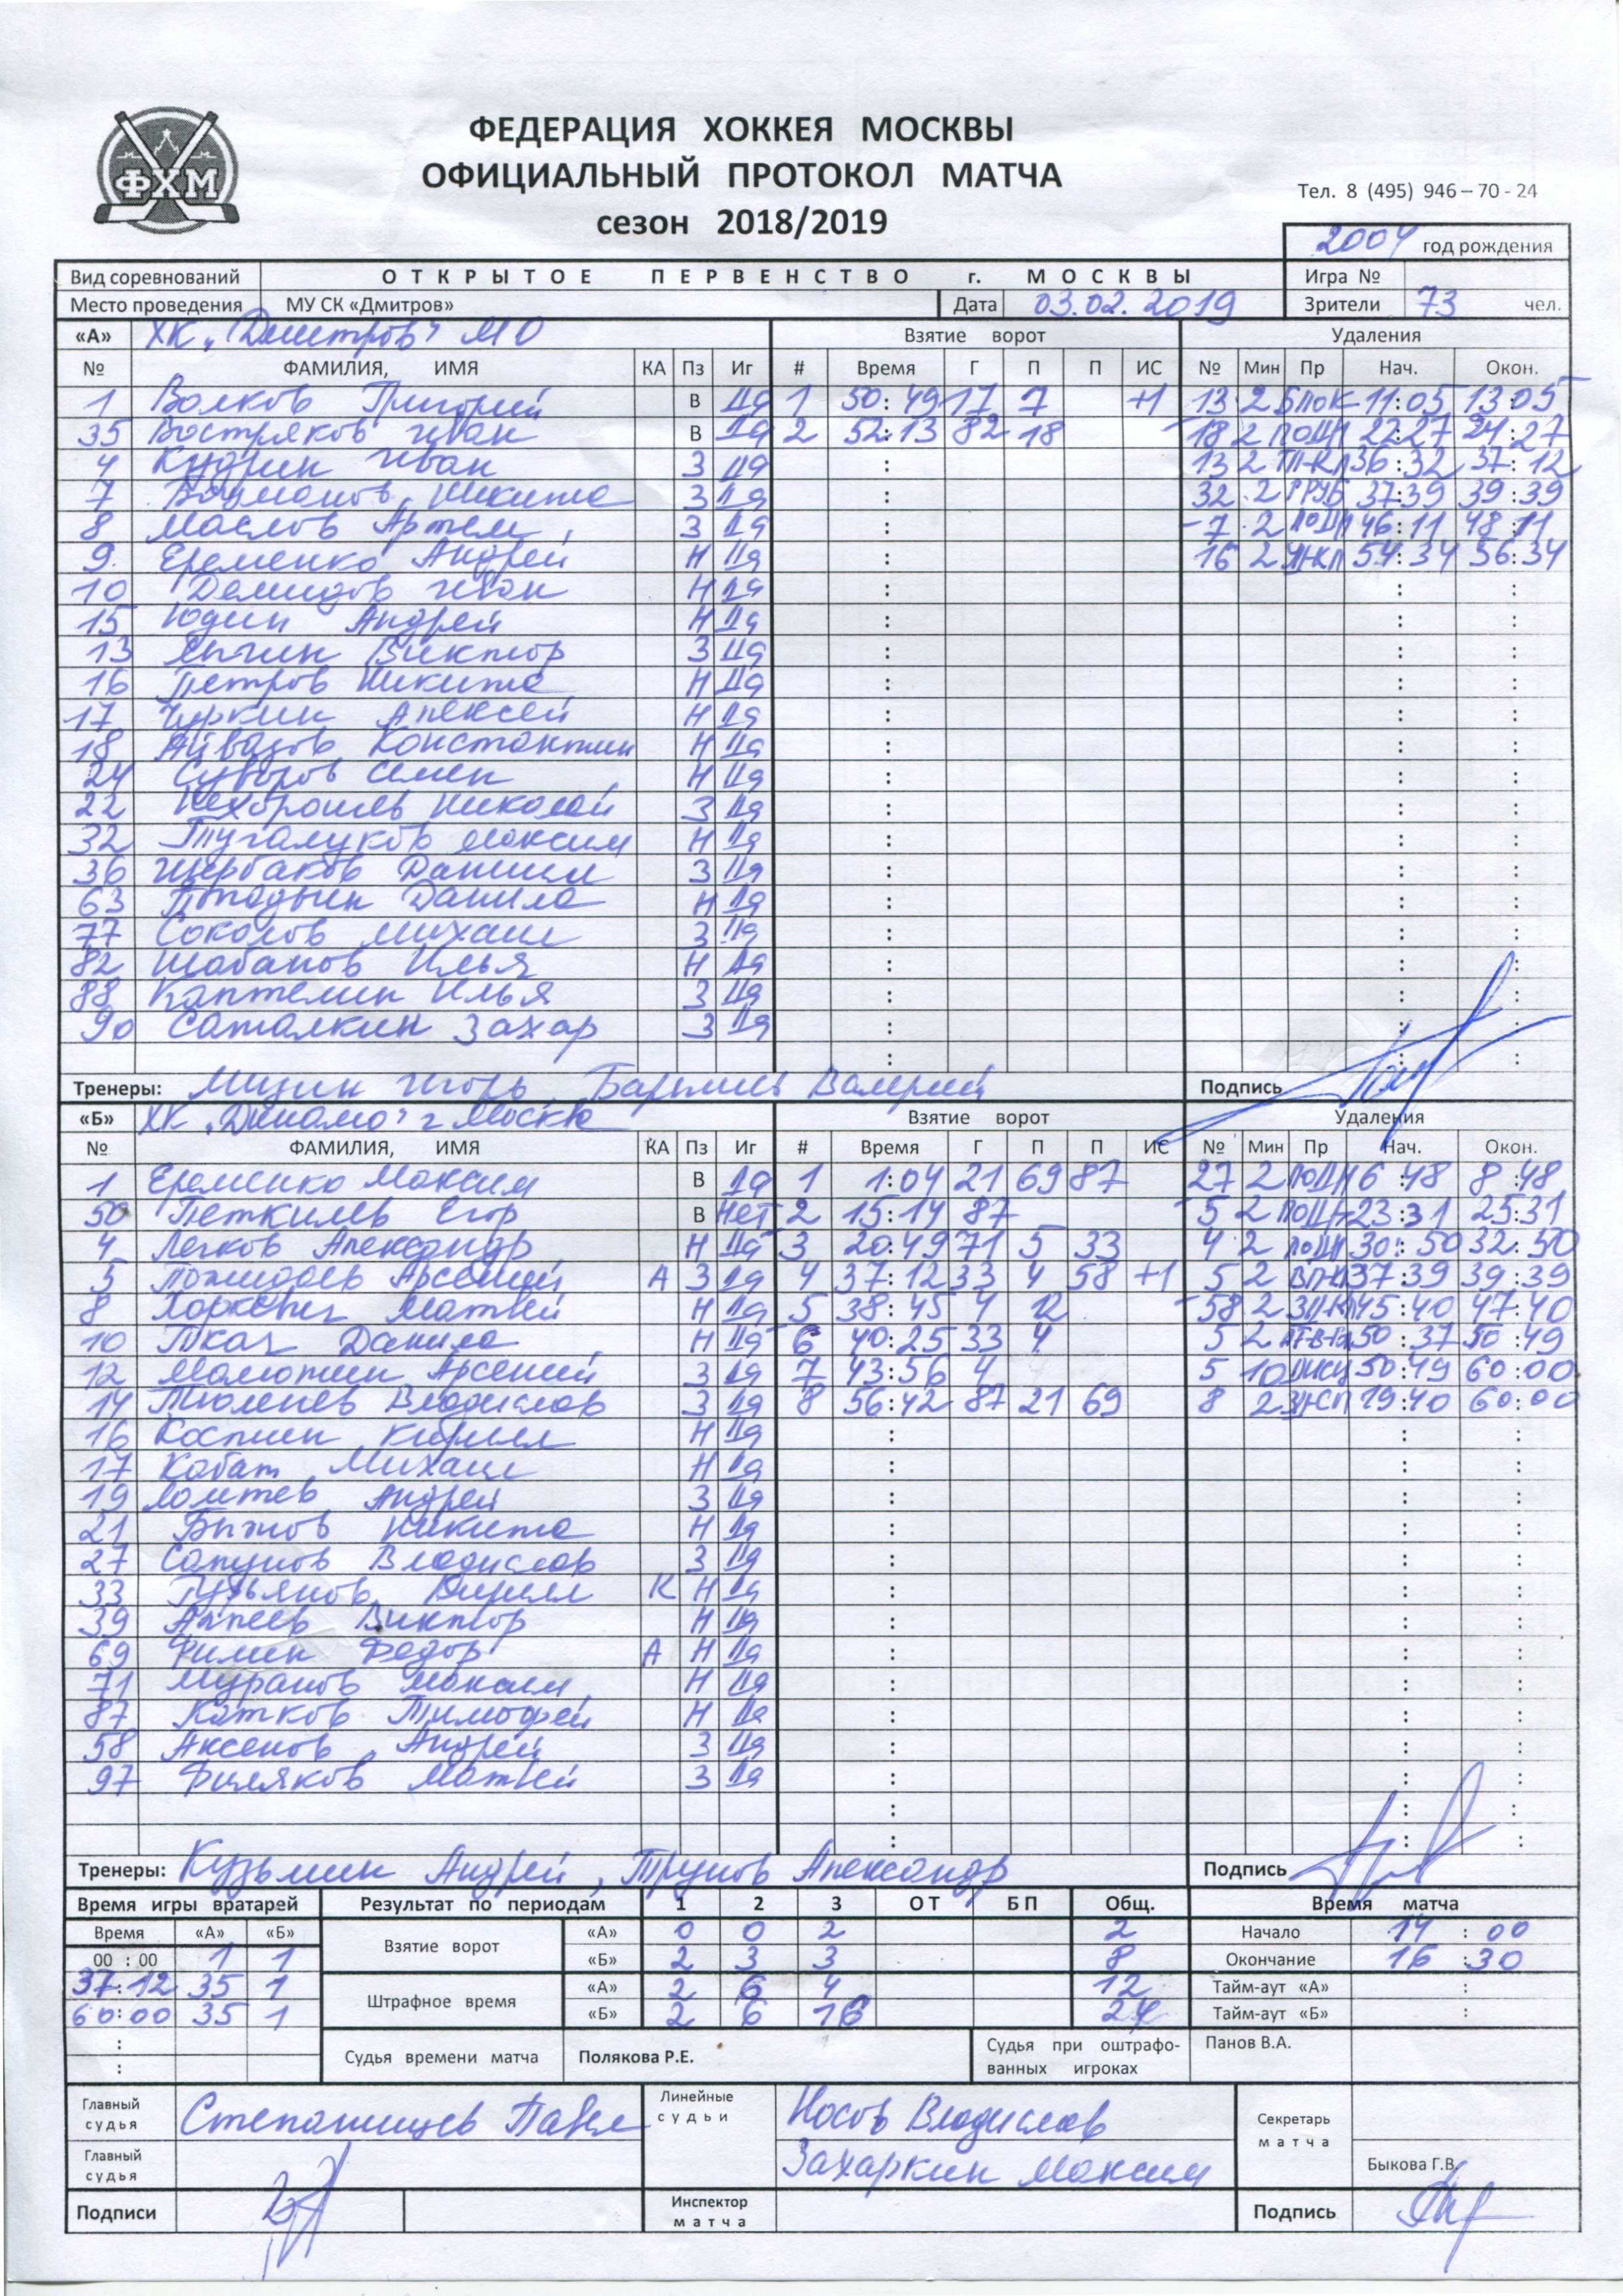 ФЕДЕРАЦИЯ ХОККЕЯ МОСКВЫ
ОФИЦИАЛЬНЫЙ ПРОТОКОЛ МАТЧА
сезон 2018/2019
ФХМ
Тел. 8 (495) 946–70-24
2004 год рождения
Вид соревнований ОТКРЫТОЕ ПЕРВЕНСТВО г. МОСКВЫ Игра №
Место проведения МУ СК «Дмитров» Дата 03.02.2019 Зрители 73 чел.
«А» ХК "Дмитров" МО Взятие ворот Удаления
№ ФАМИЛИЯ, ИМЯ КА Пз Иг # Время Г П П ИС № Мин Пр Нач. Окон.
1 Волков Григорий В Да 1 50:49 17 7 +1 13 2 БЛОК 11:05 13:05
35 Востряков Иван В Да 2 52:13 82 18 18 2 ПОДН 22:27 24:27
4 Кудрин Иван З Да 13 2 36:32 37:12
7 Никита З Да 32 2 ГРУБ 37:39 39:39
8 Маслов Артем З Да 7 2 ПОДН 46:11 48:11
9 Еременко Андрей Н Да 16 2 54:34 56:34
10 Демидов Иван Н Да
15 Юдин Андрей Н Да
13 Япгин Виктор З Да
16 Петров Никита Н Да
17 Чуркин Алексей Н Да
18 Айвазов Константин Н Да
24 Суворов Семен Н Да
22 Нехорошев Николай З Да
32 Тугалуков Максим Н Да
36 Щербаков Даниил З Да
63 Данила Н Да
77 Соколов Михаил З Да
82 Шабанов Илья Н Да
88 Каптелин Илья З Да
90 Саталкин Захар З Да
Тренеры: Мизин Игорь Валерий Подпись
«Б» ХК "Динамо" г Москва Взятие ворот Удаления
№ ФАМИЛИЯ, ИМЯ КА Пз Иг # Время Г П П ИС № Мин Пр Нач. Окон.
1 Еременко Максим В Да 1 1:04 21 69 87 27 2 ПОДН 6:48 8:48
50 Петкилев Егор В Нет 2 15:14 87 5 2 ПОДН 23:31 25:31
4 Легков Александр Н Да 3 20:49 71 5 33 4 2 ПОДН 30:50 32:50
5 Пожидаев Арсений А З Да 4 37:12 33 4 58 +1 5 2 37:39 39:39
8 Матвей Н Да 5 38:45 4 12 58 2 45:40 47:40
10 Ткач Данила Н Да 6 40:25 33 4 5 2 50:37 50:49
12 Мамоткин Арсений З Да 7 43:56 4 5 10 50:49 60:00
14 Тюленев Владислав З Да 8 56:42 87 21 69 8 2 60:00
16 Коспин Кирилл Н Да
17 Кабат Михаил Н Да
19 Ломтев Андрей З Да
21 Бычков Никита Н Да
27 Сапунов Владислав З Да
33 Гурьянов Кирилл К Н Да
39 Аппеев Виктор Н Да
69 Филин Федор А Н Да
71 Муранов Максим Н Да
87 Катков Тимофей Н Да
58 Аксенов Андрей З Да
97 Филяков Матвей З Да
Тренеры: Кузьмин Андрей, Трунов Александр Подпись
Время игры вратарей Результат по периодам 1 2 3 ОТ БП Общ. Время матча
Время «А» «Б» Взятие ворот «А» 0 0 2 2 Начало 14:00
00 : 00 1 1 «Б» 2 3 3 8 Окончание 16:30
37:12 35 1 Штрафное время «А» 2 6 4 12 Тайм-аут «А» :
60:00 35 1 «Б» 2 6 16 24 Тайм-аут «Б» :
Судья времени матча Полякова Р.Е. Судья при оштрафо-ванных игроках Панов В.А.
Главный судья Степанищев Павел Линейные судьи Носов Владислав Секретарь матча
Главный судья Захаркин Максим Быкова Г.В.
Подписи Инспектор матча Подпись